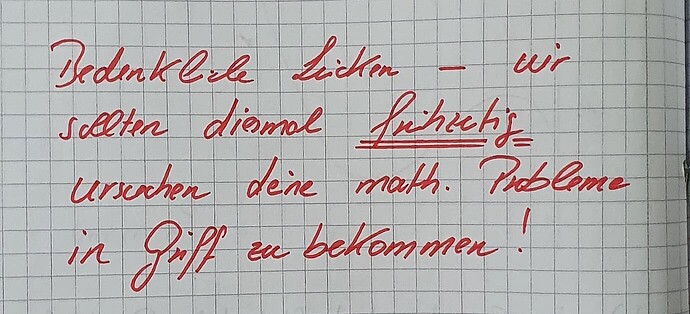 Bedenkliche Lücken – wir
sollten diesmal frühzeitig
versuchen deine math. Probleme
in Griff zu bekommen!